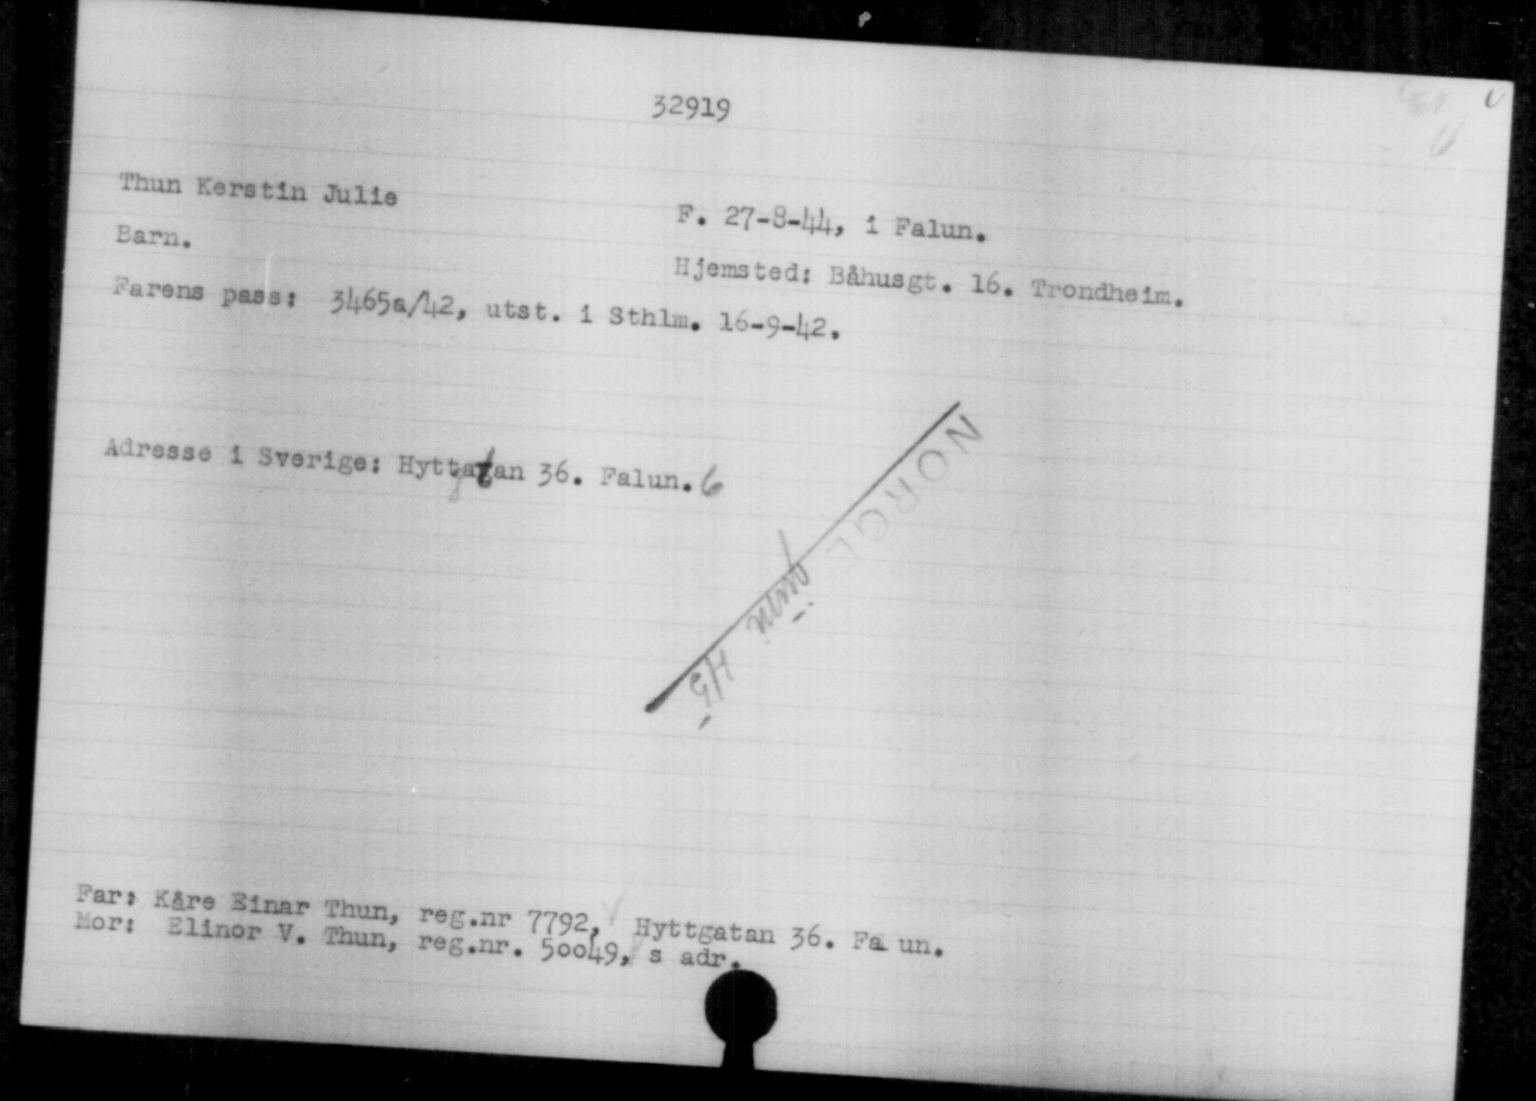 32919
Thun Kerstin Julie
F. 27-8-44, i Falun.
Barn.
Hjemsted: Båhusgt. 16. Trondheim.
Farens pass: 3465a/42, utst. i Sthlm. 16-9-42.
Adresse i Sverige: Hyttgatan 36. Falun. 6
NORGE
Far: Kåre Einar Thun, reg.nr 7792, Hyttgatan 36. Fa un.
Mor: Elinor V. Thun, reg.nr. 50049, s adr.